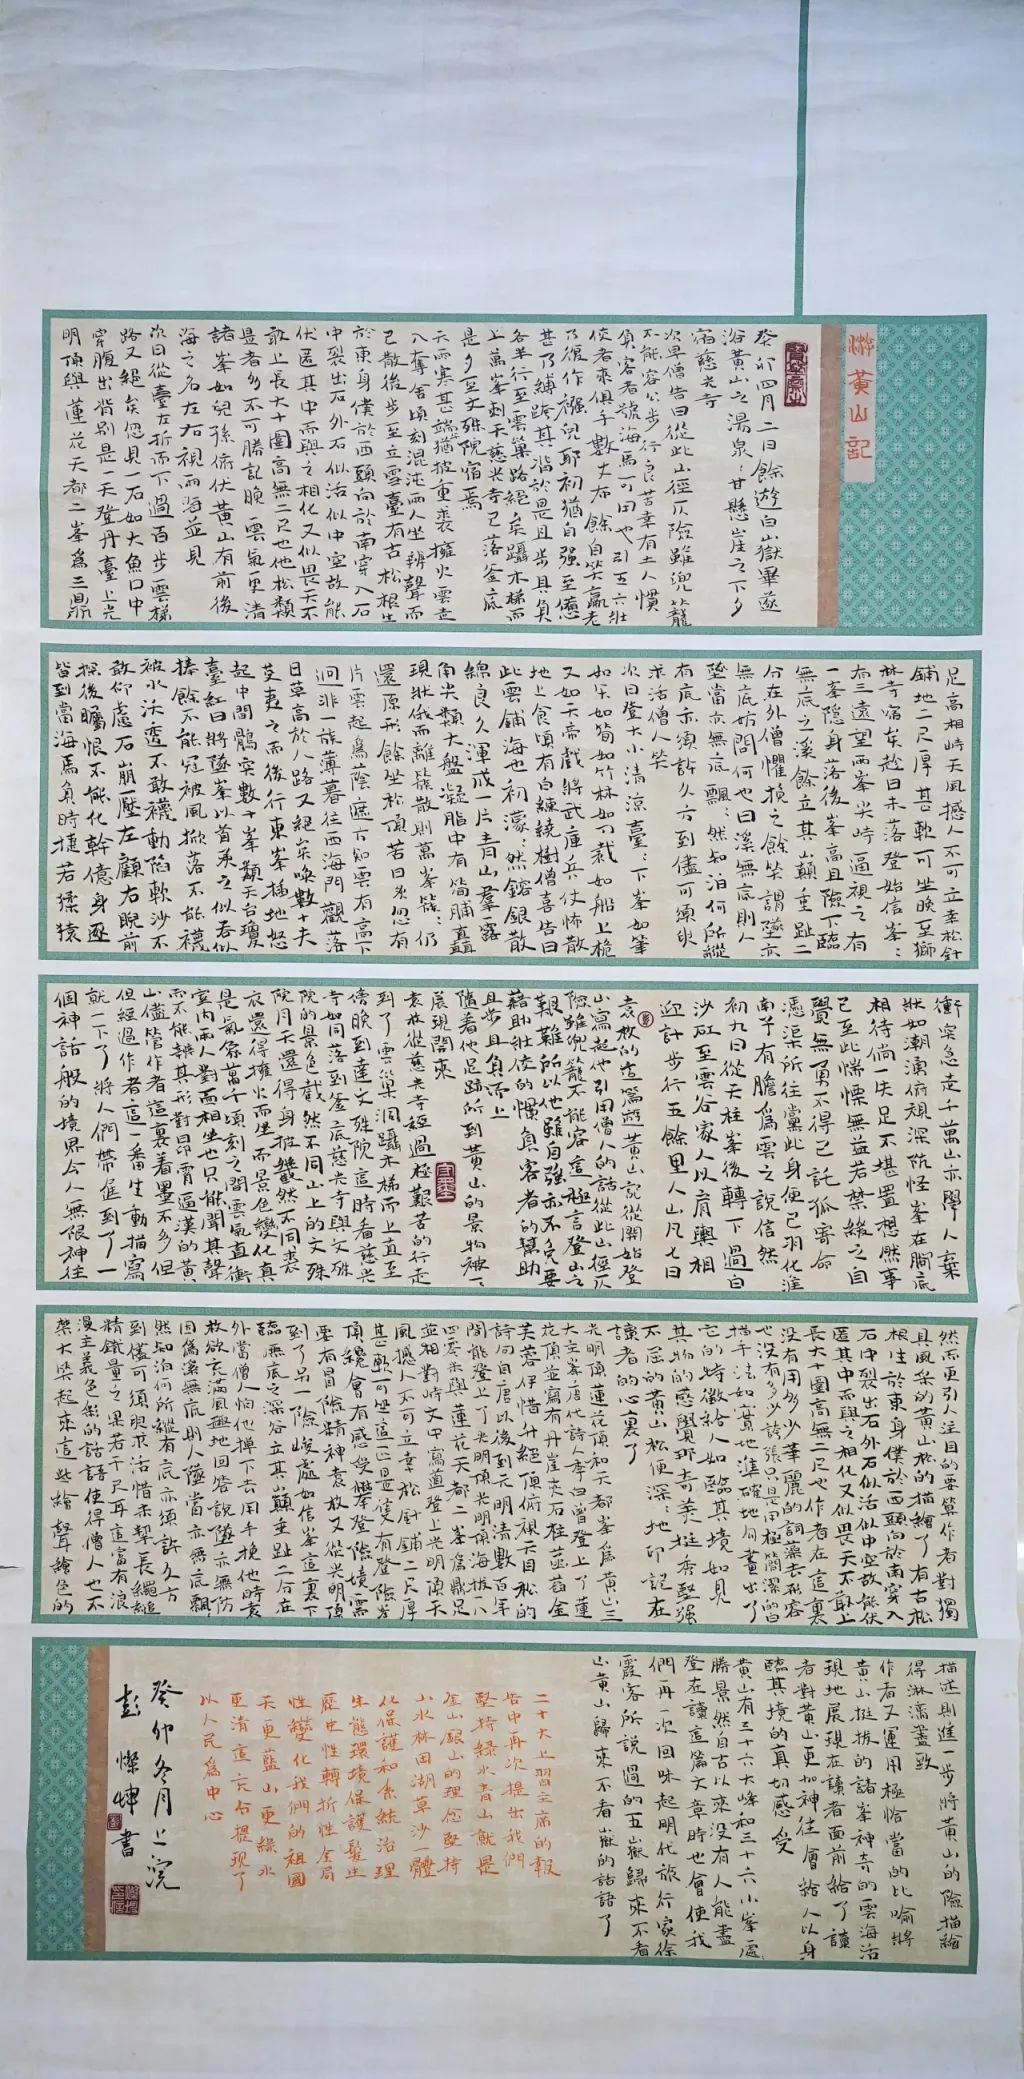 遊黃山記
癸卯四月二日餘遊白嶽畢遂
浴黃山之湯泉：甘懸崖之下夕
宿慈光寺
次早僧告曰從此山徑仄險雖兜籠
不能容公步行良苦幸有土人慣
負客者號海馬可用也引五六壯
佼者來俱手數丈布餘自笑羸老
乃復作襁兒耶初猶自强至憊
甚乃縛跨其揹於是且步且負
各半行至雲巢路絕矣躡木梯而
上萬峯刺天慈光寺已落釜底
是夕至文殊院宿焉
天雨寒甚端猶披重裘擁火雲走
入奪舍頃刻混沌兩人坐辨聲而
已散後步至立雪臺有古松根生
於東身僕於西頭向於南穿入石
中裂出石外石似活似中空故能
伏匿其中而與之相化又似畏天不
敢上長大十圍高無二尺也他松類
是者多不可勝記晚雲氣更清
諸峯如兒孫俯伏黃山有前後
海之名左右視兩海並見
次日從臺左折而下過百步雲梯
路又絕矣忽見一石如大魚口中
穿腹出背別是一天登丹臺上光
明頂與蓮花天都二峯爲三鼎
足高相峙天風撼人不可立幸松針
鋪地二尺厚甚軟可坐晚至獅
林寺宿矣趁日未落登始信峯：
有三遠望兩峯尖峙逼視之有
一峯隱身落後峯高且險下臨
無底之溪餘立其巔垂趾二
分在外僧懼挽之餘笑謂墜亦
無底妨問何也曰溪無底則人
墜當亦無底飄：然知泊何所縱
有底亦須許久方到儘可須臾
求活僧人笑
次日登大小清涼臺：下峯如筆
如矢如筍如竹林如刀戟如船上桅
又如天帝戲將武庫兵仗怖散
地上食頃有白練繞樹僧喜告曰
此雲鋪海也初濛：然鎔銀散
綿良久渾成一片青山羣露
角尖類大盤凝脂中有筍脯矗
現狀俄而離散則萬峯簇：仍
還原形餘坐松頂苦日炙忽有
片雲起爲蔭遮方知雲有高下
迥非一族薄暮往西海門觀落
日草高於人路又絕矣喚數十夫
芟夷之而後行東峯插地怒
起中間鶻突數十峯類天台瓊
臺紅日將墜峯以首承之似吞似
捧餘不能冠被風掀落不能襪
被水沃透不敢襪動陷軟沙不
敢仰慮石崩壓左顧右睨前
探後矚恨不能化幹億身逐
皆到當海馬負時捷若猱猿
衝突急走千萬山亦學人奔
狀如潮湧俯視深阬怪峯在脚底
相待倘一失足不堪置想然事
已至此惴慄無益若禁緩之自
覺無勇不得已託孤寄命
憑渠所往黨此身便已羽化淮
南子有膽爲雲之說信然
初九日從天柱峯後轉下過白
沙矼至雲谷家人以肩輿相
迎計步行五餘里入山凡七日
袁枚的這篇遊黃山記從開始登
山寫起他引用僧人的話從此山徑仄
險雖兜籠不能容這極言登山之
艱難所以他雖自强亦不免要
藉助壯佼的慣負客者的幫助
且步且負而上
隨着他足跡所到黃山的景物被一一
展現開來
袁枚從慈光寺經過極艱苦的行走
到了雲巢洞躡木梯而上直至
傍晚到達文殊院這時看慈光
寺如同落到釜底慈光寺與文殊
院的景色截然不同山上的文殊
院月天還得身披截然不同裘
衣還得擁火而坐而景色變化真
是氣象萬千頃刻之間雲氣直衝
室內兩人對面相坐也只能聞其聲
而不能辨其形對昂霄逼漢的黃
山儘管作者這裏着墨不多但
但經過作者這一番生動描寫
就一下了將人們帶進到了一
個神話般的境界令人無限神往
然而更引人注目的要算作者對獨
具風采的黃山松的描繪了有古松
根生於東身僕於西頭向於南穿入
石中裂出石外石似活似中空故能伏
匿其中而與之相化又似畏天不敢上
長大十圍高無二尺也作者在這裏
沒有用多少華麗的詞藻去形容
也沒有多少誇張只是用極簡潔的白
描手法如實地準確地勾畫出了
它的特徵給人如臨其境如見
其物的感覺那奇美挺秀堅强
不屈的黃山松便深：地印記在
讀者的心裏了
光明頂蓮花頂和天都峯爲黃山三
大主峯唐代詩人李白曾登上了蓮
花頂並寫有丹崖夾石柱菡萏金
芙蓉伊惜升絕頂俯視天目松的
詩句自唐以後到元明清數百年
間能登上了光明頂光明頂海拔一八
四零米與蓮花天都二峯爲鼎足
並相對峙文中寫道登上光明頂天
風撼人不可立幸松針鋪二尺厚
甚軟可坐這正是隻有登臨光明
頂纔會有感受攀登險境需
要有冒險精神袁枚又從光明頂
到了另一險峻處始信峯這裏下
臨無底之深谷立其巔垂趾二分在
外當僧人怕他掉下去用手挽他時袁
枚欲充滿風趣地回答說墜亦無妨
因爲溪無底則人墜當亦無底飄
然知泊何所縱有底亦須許久方
到儘可須臾求活惜未挈長繩縋
精鐵量之果若千尺耳這富有浪
漫主義色彩的話語使得僧人也不
禁大笑起來這些繪聲繪色的
描述則進一步將黃山的險描繪
得淋漓盡致
作者又運用極恰當的比喻將
黃山挺拔的諸峯神奇的雲海活
現地展現在讀者面前給了讀
者對黃山更加神往會給人以身
臨其境的真切感受
黃山有三十六大峰和三十六小峯處
勝景然自古以來沒有人能盡
登在讀這篇文章時也會使我
們再一次回味起明代旅行家徐
霞客所說過的五嶽歸來不看
山黃山歸來不看嶽的話語了
二十大上習主席的報
告中再次提出我們
堅持綠水青山就是
金山銀山的理念堅持
山水林田湖草沙一體
化保護和系統治理
生態環境保護發生
歷史性轉折性全局
性變化我們的祖國
天更藍山更綠水
更清這充分提現了
以人民爲中心
癸卯冬月上浣
彭燦坤書